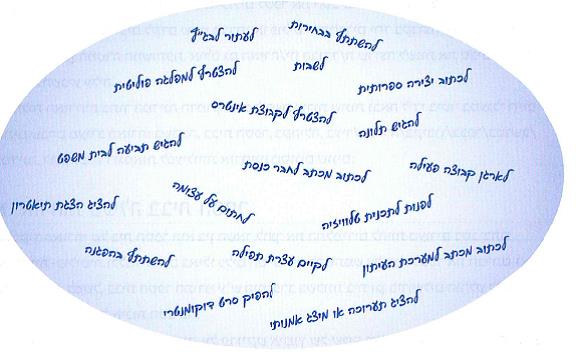 להשתתף בבחירות
לעתור לבג״ץ
לשבות
להצטרף למפלגה פוליטית
לכתוב יצירה ספרותית
להצטרף לקבוצת אינטרס
להגיש תלונה
להגיש תביעה לבית משפט
לכתוב מכתב לחבר כנסת
לארגן קבוצה פעילה
לחתום על עצומה
להציג הצגת תיאטרון
לפנות לתכנית טלוויזיה
להשתתף בהפגנה
לקיים עצרת תפילה
לכתוב מכתב למערכת העיתון
להפיק סרט דוקומנטרי
להציג תערוכה או מיצג אמנותי